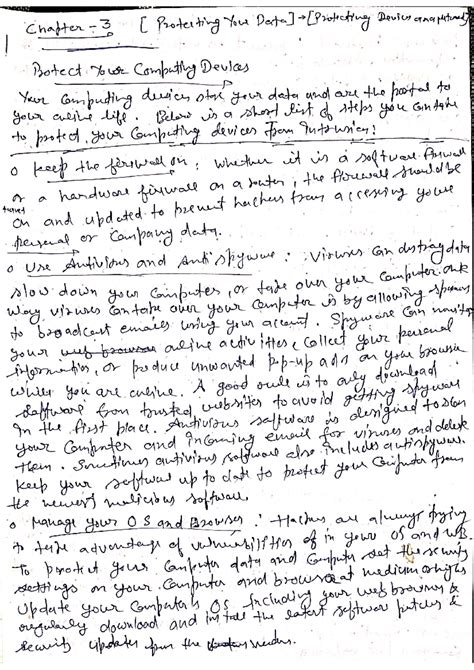 Chapter - 3 [Protecting Your Data] → [Protecting Devices and network]
Protect Your Computing Devices
Your Computing devices store your data and are the portal to
your online life. Below is a short list of steps you can take
to protect your Computing devices from Intrusion:
o Keep the firewall on: Whether it is a software firewall
or a hardware firewall on a router, the firewall should be
turned
on and updated to prevent hackers from accessing your
personal or Company data.
o Use Antivirus and Antispyware: Viruses Can destroy data
slow down your Computer, or take over your Computer. one
way viruses can take over your Computer is by allowing spammers
to broadcast emails using your account. Spyware Can monitor
your web browser online activities, Collect your personal
information, or produce unwanted Pop-up ads on your browser
while you are online. A good rule is to only download
software from trusted websites to avoid getting spyware
in the first place. Antivirus software is designed to scan
your Computer and Incoming email for viruses and delete
them. Sometimes antivirus software also includes antispyware.
Keep your software up to date to protect your Computer from
the newest malicious software.
o Manage Your OS and Browser: Hackers are always trying
to take advantage of vulnerabilities of in your OS and web.
To protect your Computer data and Computer set the security
settings on your Computer and browser at medium or higher
Update your Computer's OS including your web browsers &
regularly download and install the latest software patches &
security updates from the vendors.